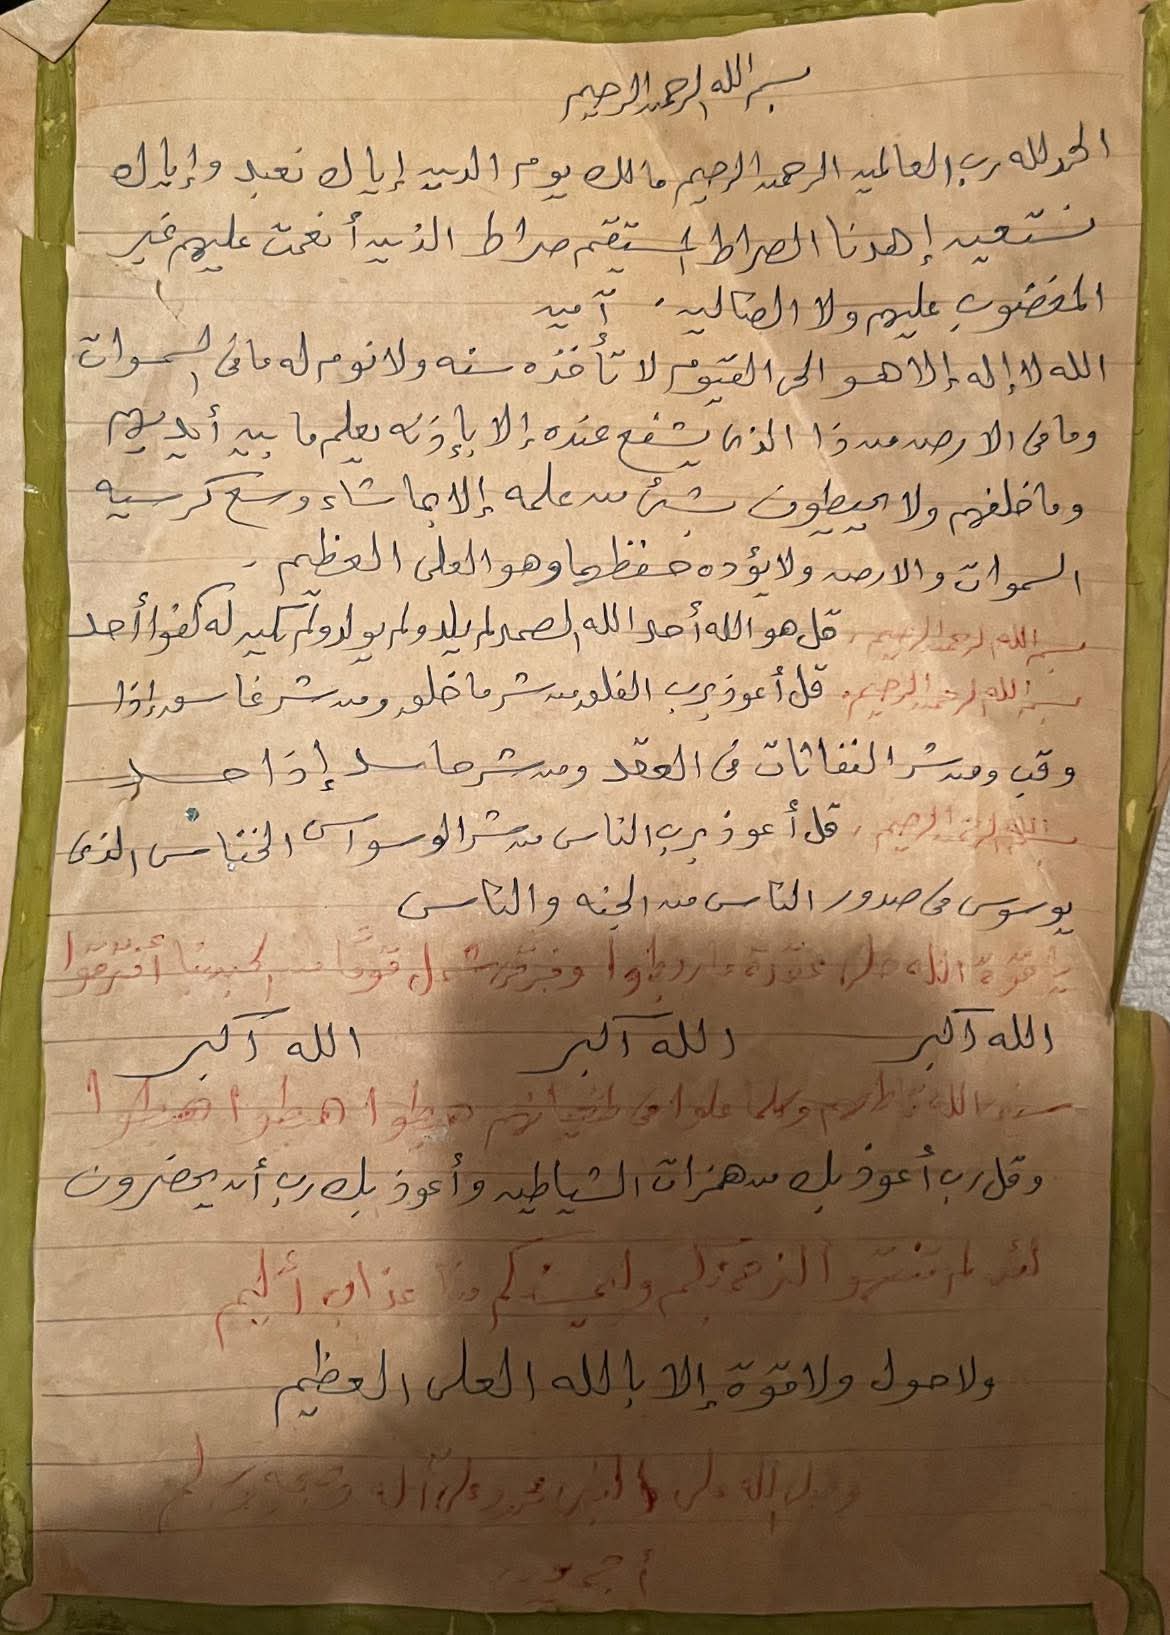 بسم الله الرحمن الرحيم
الحمد لله رب العالمين الرحمن الرحيم مالك يوم الدين إياك نعبد وإياك
نستعين إهدنا الصراط المستقيم صراط الذين أنعمت عليهم غير
المغضوب عليهم ولا الضالين . آمين
الله لا إله إلا هو الحى القيوم لا تأخذه سنه ولا نوم له ما فى السموات
وما فى الارض من ذا الذى يشفع عنده إلا بإذنه يعلم ما بين أيديهم
وما خلفهم ولا يحيطون بشئ من علمه إلا بما شاء وسع كرسيه
السموات والارض ولا يؤده حفظهما وهو العلى العظيم .
بسم الله الرحمن الرحيم . قل هو الله أحد الله الصمد لم يلد ولم يولد ولم يكن له كفوا أحد
بسم الله الرحمن الرحيم . قل أعوذ برب الفلق من شر ما خلق ومن شر غاسق إذا
وقب ومن شر النفاثات فى العقد ومن شر حاسد إذا حسد
بسم الله الرحمن الرحيم . قل أعوذ برب الناس من شر الوسواس الخناس الذى
يوسوس فى صدور الناس من الجنه والناس
الله عقدة ربطوا قوما من
الله أكبر الله أكبر الله أكبر
الله وكلما علوا فى طغيانهم هبطوا هبطوا هبطوا
وقل رب أعوذ بك من همزات الشياطين وأعوذ بك رب أن يحضرون
لئن لم تنتهوا لنرجمنكم وليمسنكم منا عذاب أليم
ولا حول ولا قوة إلا بالله العلى العظيم
وصلى الله على النبى محمد وعلى آله وصحبه وسلم
أجمعين